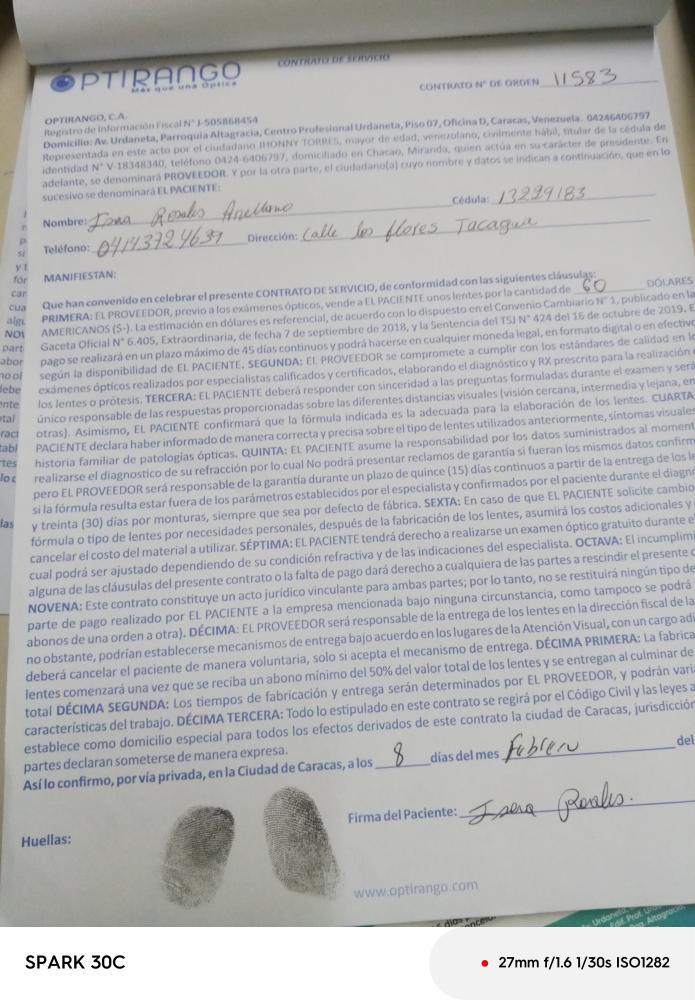 CONTRATO DE SERVICIO
OPTIRANGO
Más que una Óptica
CONTRATO N° DE ORDEN 11583
OPTIRANGO, C.A.
Registro de Información Fiscal N° J-505868454
Domicilio: Av. Urdaneta, Parroquia Altagracia, Centro Profesional Urdaneta, Piso 07, Oficina D, Caracas, Venezuela. 04246406797
Representada en este acto por el ciudadano JHONNY TORRES, mayor de edad, venezolano, civilmente hábil, titular de la cédula de
identidad N° V-18348340, teléfono 0424-6406797, domiciliado en Chacao, Miranda, quien actúa en su carácter de presidente. En
adelante, se denominará PROVEEDOR. Y por la otra parte, el ciudadano(a) cuyo nombre y datos se indican a continuación, que en lo
sucesivo se denominará EL PACIENTE:
Nombre: Rosales Arellano Cédula: 13229183
Teléfono: 04143724639 Dirección: Calle los flores Tacagua
MANIFIESTAN:
Que han convenido en celebrar el presente CONTRATO DE SERVICIO, de conformidad con las siguientes cláusulas:
PRIMERA: EL PROVEEDOR, previo a los exámenes ópticos, vende a EL PACIENTE unos lentes por la cantidad de 60 DÓLARES
AMERICANOS ($-). La estimación en dólares es referencial, de acuerdo con lo dispuesto en el Convenio Cambiario N° 1, publicado en la
Gaceta Oficial N° 6.405, Extraordinaria, de fecha 7 de septiembre de 2018, y la Sentencia del TSJ N° 424 del 16 de octubre de 2019. E
pago se realizará en un plazo máximo de 45 días continuos y podrá hacerse en cualquier moneda legal, en formato digital o en efectivo
según la disponibilidad de EL PACIENTE. SEGUNDA: EL PROVEEDOR se compromete a cumplir con los estándares de calidad en lo
exámenes ópticos realizados por especialistas calificados y certificados, elaborando el diagnóstico y RX prescrito para la realización
los lentes o prótesis. TERCERA: EL PACIENTE deberá responder con sinceridad a las preguntas formuladas durante el examen y será
único responsable de las respuestas proporcionadas sobre las diferentes distancias visuales (visión cercana, intermedia y lejana, en
otras). Asimismo, EL PACIENTE confirmará que la fórmula indicada es la adecuada para la elaboración de los lentes. CUARTA
PACIENTE declara haber informado de manera correcta y precisa sobre el tipo de lentes utilizados anteriormente, síntomas visuales
historia familiar de patologías ópticas. QUINTA: EL PACIENTE asume la responsabilidad por los datos suministrados al moment
realizarse el diagnostico de su refracción por lo cual No podrá presentar reclamos de garantía si fueran los mismos datos confirm
pero EL PROVEEDOR será responsable de la garantía durante un plazo de quince (15) días continuos a partir de la entrega de los le
si la fórmula resulta estar fuera de los parámetros establecidos por el especialista y confirmados por el paciente durante el diagn
y treinta (30) días por monturas, siempre que sea por defecto de fábrica. SEXTA: En caso de que EL PACIENTE solicite cambio
fórmula o tipo de lentes por necesidades personales, después de la fabricación de los lentes, asumirá los costos adicionales y
cancelar el costo del material a utilizar. SÉPTIMA: EL PACIENTE tendrá derecho a realizarse un examen óptico gratuito durante e
cual podrá ser ajustado dependiendo de su condición refractiva y de las indicaciones del especialista. OCTAVA: El incumplimi
alguna de las cláusulas del presente contrato o la falta de pago dará derecho a cualquiera de las partes a rescindir el presente c
NOVENA: Este contrato constituye un acto jurídico vinculante para ambas partes; por lo tanto, no se restituirá ningún tipo de
parte de pago realizado por EL PACIENTE a la empresa mencionada bajo ninguna circunstancia, como tampoco se podrá
abonos de una orden a otra). DÉCIMA: EL PROVEEDOR será responsable de la entrega de los lentes en la dirección fiscal de la
no obstante, podrían establecerse mecanismos de entrega bajo acuerdo en los lugares de la Atención Visual, con un cargo adi
deberá cancelar el paciente de manera voluntaria, solo si acepta el mecanismo de entrega. DÉCIMA PRIMERA: La fabrica
lentes comenzará una vez que se reciba un abono mínimo del 50% del valor total de los lentes y se entregan al culminar de
total DÉCIMA SEGUNDA: Los tiempos de fabricación y entrega serán determinados por EL PROVEEDOR, y podrán vari
características del trabajo. DÉCIMA TERCERA: Todo lo estipulado en este contrato se regirá por el Código Civil y las leyes a
establece como domicilio especial para todos los efectos derivados de este contrato la ciudad de Caracas, jurisdicción
partes declaran someterse de manera expresa.
Así lo confirmo, por vía privada, en la Ciudad de Caracas, a los 8 días del mes Febrero del
Huellas:
Firma del Paciente: Rosales.
www.optirango.com
SPARK 30C
27mm f/1.6 1/30s ISO1282